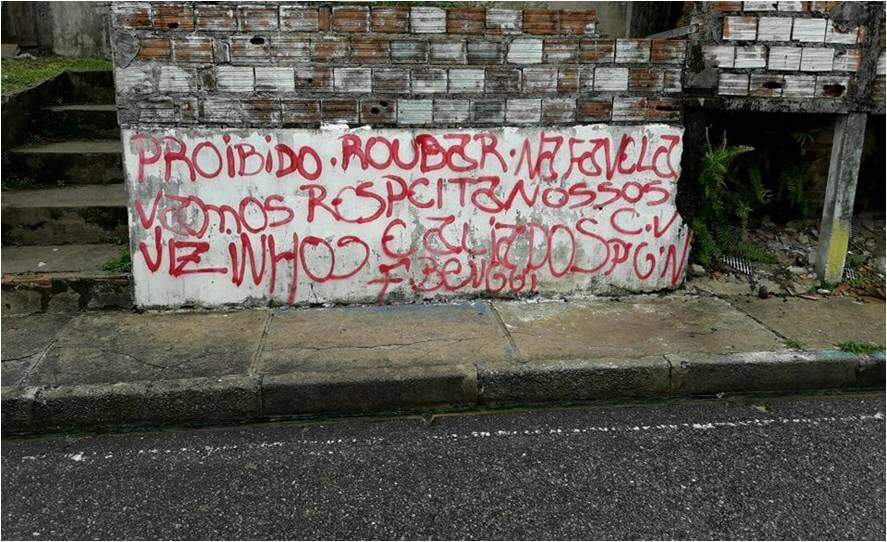 PROIBIDO. ROUBAR. NA FAVELA
VAMOS RESPEITA NOSSOS
VIZINHOS E ALIADOS C.V
F BENGUI